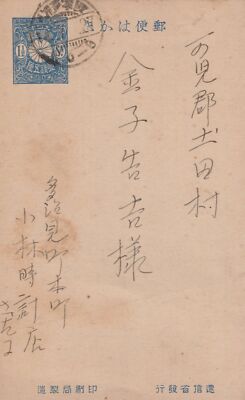 郵便はかき
可児郡土田村
金子吉吉様
多治見町本町
小林時計店
印刷局製造
遞信省發行